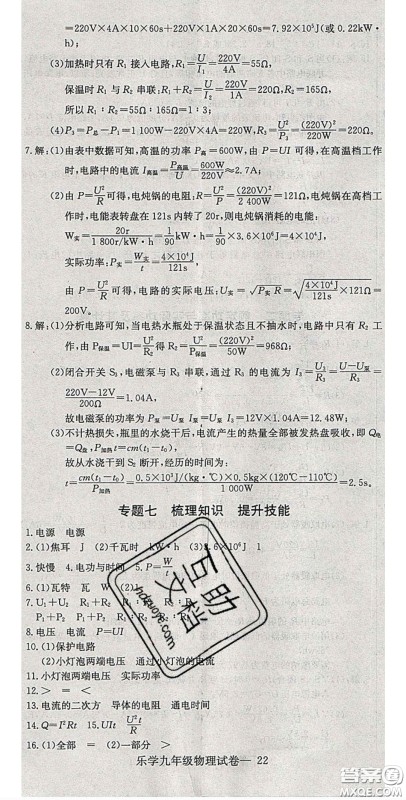 =220V×4A×10×60s+220V×1A×20×60s=7.92×10⁵J(或 0.22kW·
h);
(3)加热时只有 R₁ 接入电路,R₁=U/I₁=220V/4A=55Ω,
保温时 R₁ 与 R₂ 串联;R₁+R₂=U/I₂=220V/1A=220Ω,R₂=165Ω,
所以 R₁∶R₂=55Ω∶165Ω=1∶3;
(4)P₃=P总-P₁=1 100W-220V×4A=220W,R₃=U²/P₃=(220V)²/220W=220Ω。
7.解:(1)由表中数据可知,高温的功率 P高=600W,由 P=UI 可得,在高温档工作
时,电路中的电流 I高温=P高温/U=600W/220V≈2.7A;
(2)由 P=U²/R可得,电炖锅的电阻:R=U²/P=(220V)²/400W=121Ω,电炖锅在高档工
作时,电能表转盘在 121s 内转了 20r,则电炖锅消耗的电能:
W实=20r/1 800r/kW·h=1/90kW·h=1/90×3.6×10⁶J=4×10⁴J,
实际功率:P实=W/t=4×10⁴J/121s,
由 P=U²/R可得,电路的实际电压:U实=√P实R=√4×10⁴J/121s×121Ω=
200V。
8.解:(1)分析电路可知,当电热水瓶处于保温状态且不抽水时,电路中只有 R₂ 工
作,由 P保温=UI=U²/R₂得:R₂=U²/P保温=(220V)²/50W=968Ω;
(2)闭合开关 S₃,电磁泵与 R₃ 串联,通过 R₃ 的电流为 I₃=U₃/R₃=U-U泵/R₃=
220V-12V/200Ω=1.04A,
故电磁泵的功率为 P泵=U泵I泵=U泵I₃=12V×1.04A=12.48W;
(3)不计热损失,瓶里的水烧干后,电流产生的热量全部被发热盘吸收,即 Q电
=Q盘,P加热t=cm(t₁-t₀),
故从水烧干到 S₂ 断开,经历的时间为:
t=cm(t₁-t₀)/P加热=0.5×10³J/(kg·℃)×0.5kg×(120℃-110℃)/1 000W=2.5s。
专题七 梳理知识 提升技能
1.电源 电源
2.(1)焦耳 J (2)千瓦时 kW·h (3)3.6×10⁶J 1
3.快慢 4.电功与时间 5.P=W/t
6.(1)瓦特 瓦 W
7.U₁+U₂
8.电压 电流 P=UI
10.(1)保护电路
(2)小灯泡两端电压 通过小灯泡的电流
11.小灯泡两端电压 实际功率
12.> = <
13.电流的二次方 导体的电阻 通电时间
14.Q=I²Rt 15.UIt U²/Rt
16.(1)全部 = (2)一部分 >
乐学九年级物理试卷— 22
互助文档
hdzuoye.com
答案圈
MXQE.COM